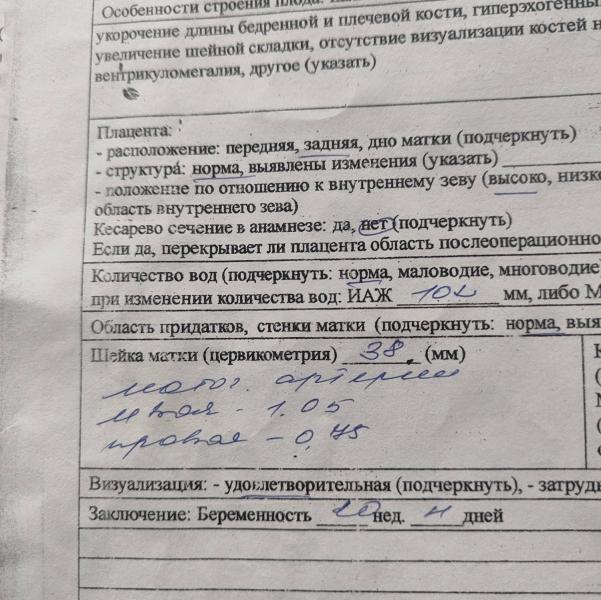 Особенности строения плода:
укорочение длины бедренной и плечевой кости, гиперэхогенны
увеличение шейной складки, отсутствие визуализации костей н
вентрикуломегалия, другое (указать)
Плацента:
- расположение: передняя, задняя, дно матки (подчеркнуть)
- структура: норма, выявлены изменения (указать)
- положение по отношению к внутреннему зеву (высоко, низко
область внутреннего зева)
Кесарево сечение в анамнезе: да, нет (подчеркнуть)
Если да, перекрывает ли плацента область послеоперационно
Количество вод (подчеркнуть: норма, маловодие, многоводие
при изменении количества вод: ИАЖ мм, либо М
Область придатков, стенки матки (подчеркнуть: норма, выя
Шейка матки (цервикометрия) 38 (мм)
маточ. артерии
левая - 1.05
правая - 0,75
Визуализация: - удовлетворительная (подчеркнуть), - затрудн
Заключение: Беременность 20 нед. дней